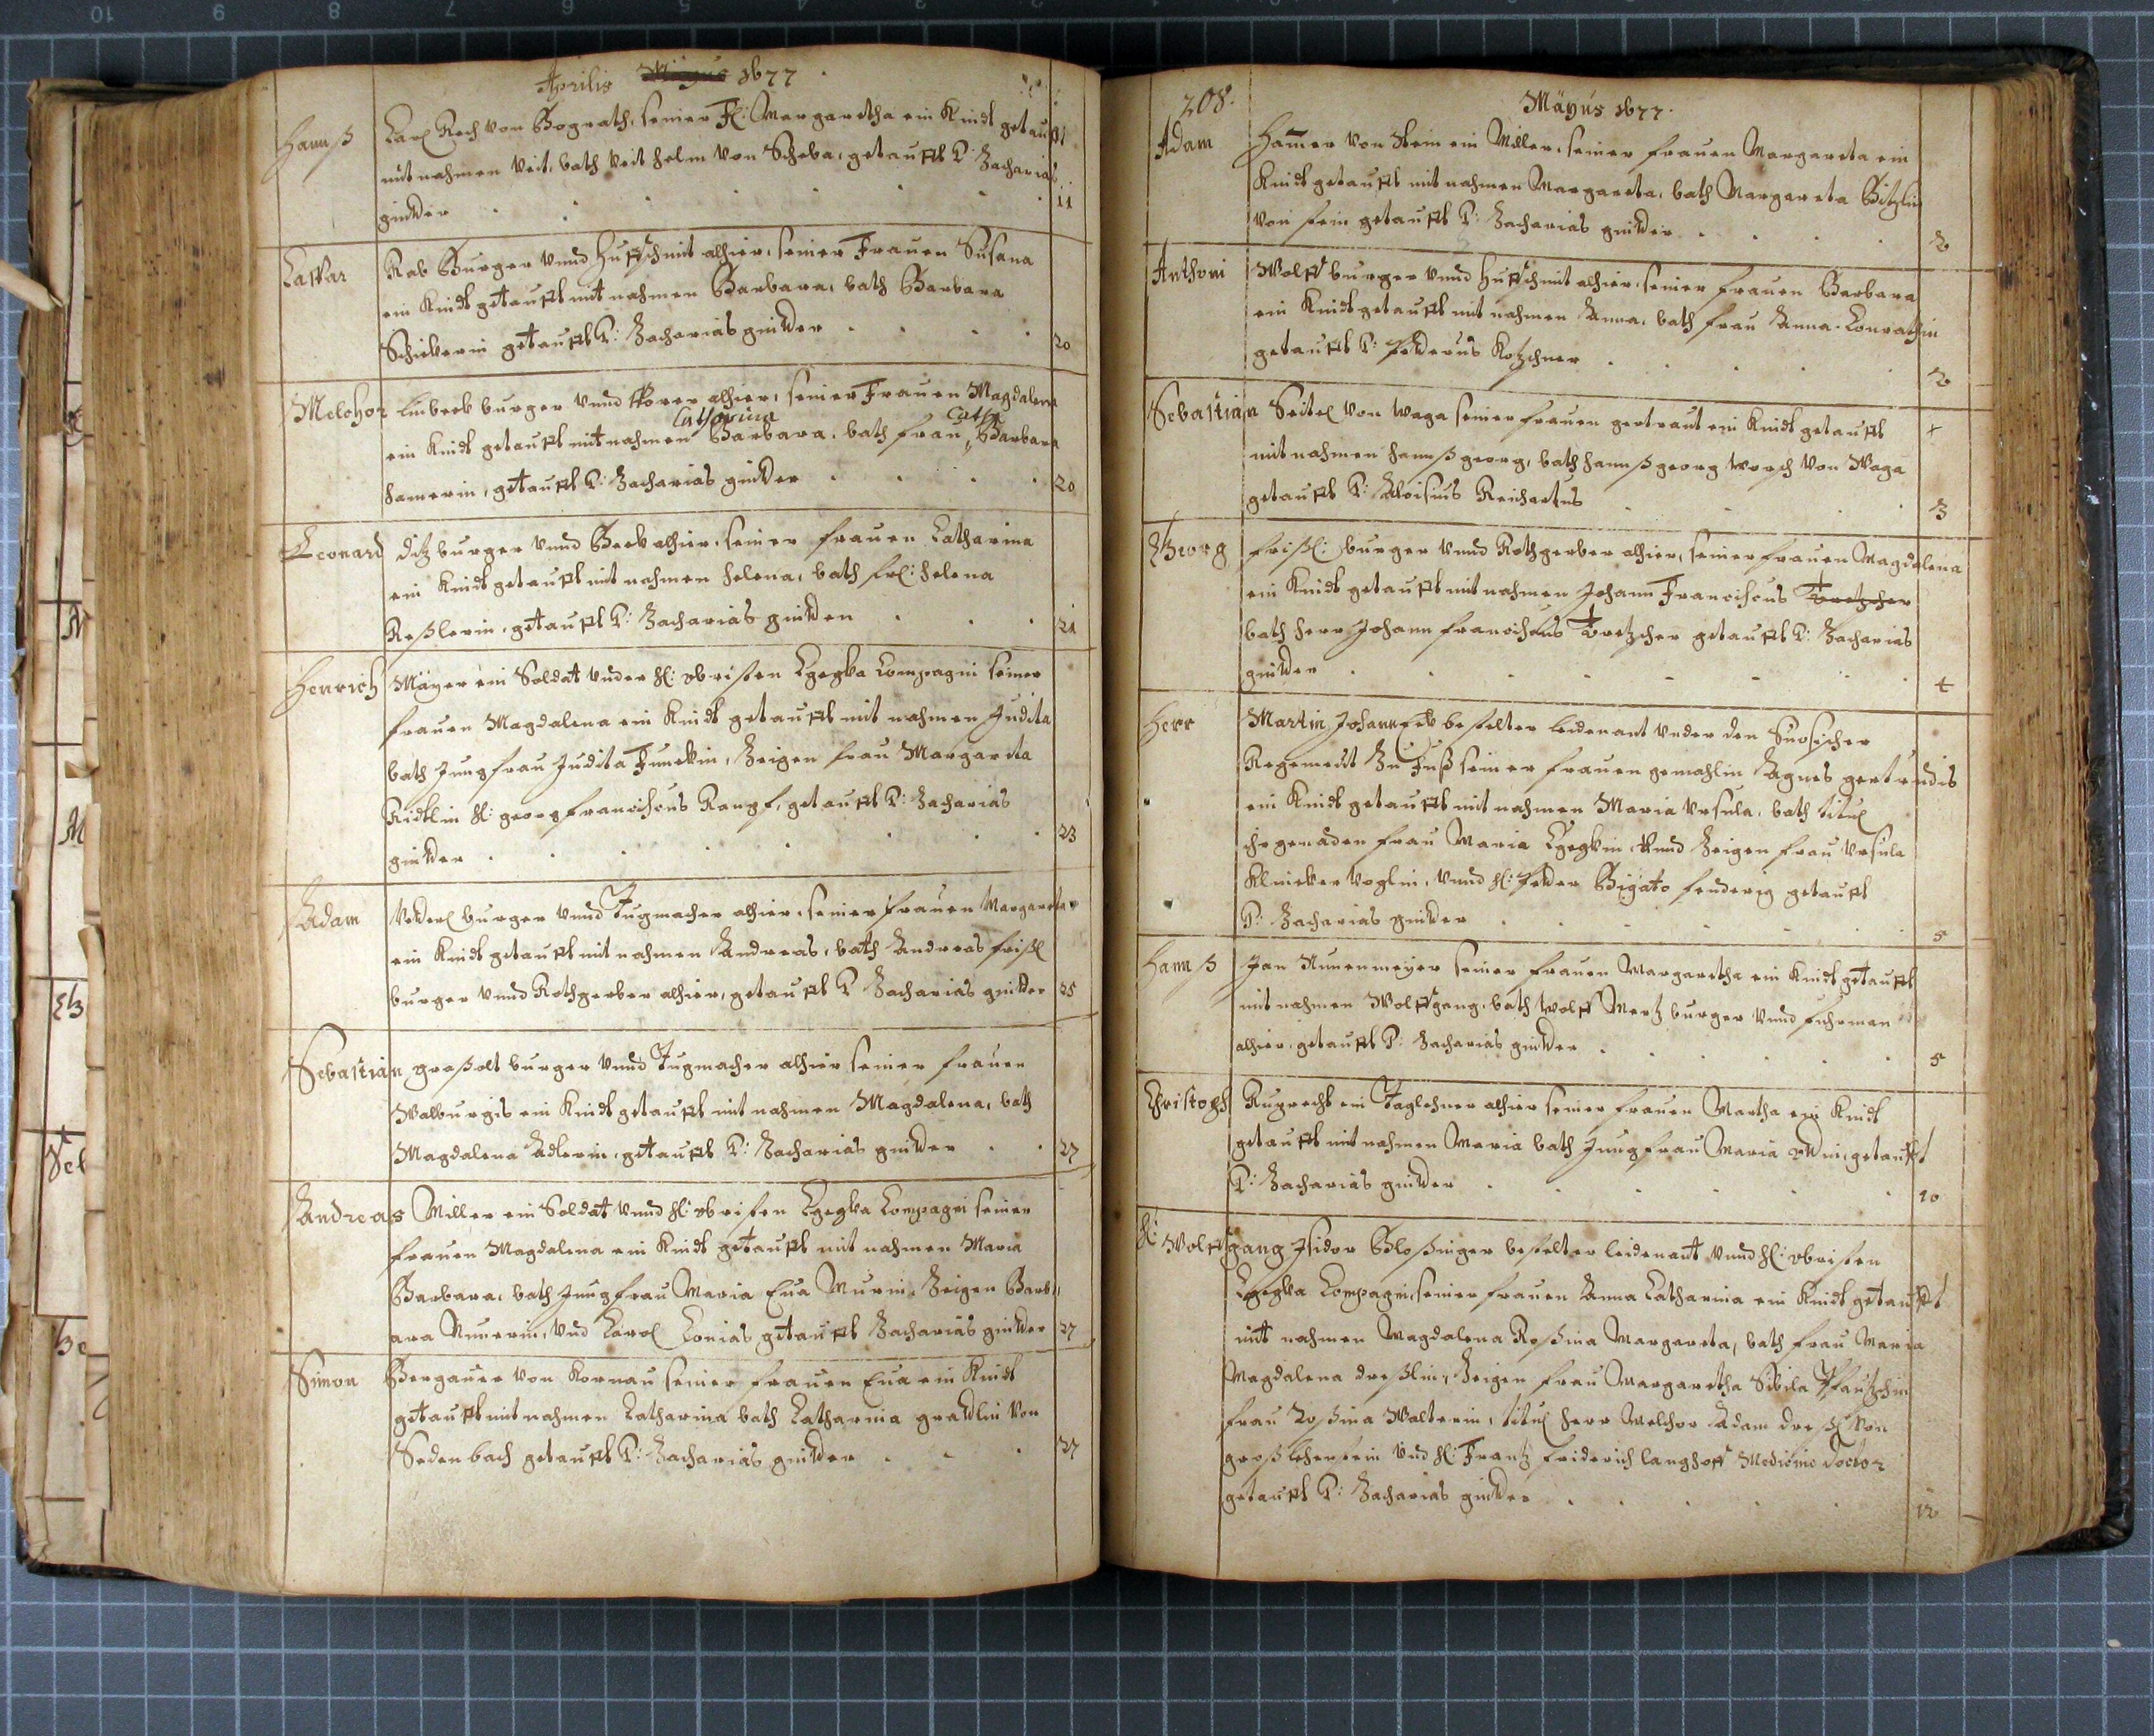 Aprilis Mayus 1677
Hannß Karl Rech von Bograth, seiner Fr: Margaretha ein Kindt getaufft
mit nahmen Veit, bath Veit helm von Scheba, getaufft P: Zacharias
gindter 11
Caspar Rab Burger vnnd Hufschmit alhier, seiner Frauen Susana
ein Kindt getaufft mit nahmen Barbara, bath Barbara
Schickerin getaufft P: Zacharias gindter 20
Melchor limbeck burger vnnd alhier, seiner Frauen Magdalena
Catharina Catha
ein Kindt getaufft mit nahmen Barbara, bath frau Barbara
hamerin, getaufft P: Zacharias gindter 20
Leonard ditz burger vnnd Beck alhier, seiner frauen Catharina
ein Kindt getaufft mit nahmen helena, bath frl: helena
Reßlerin, getaufft P: Zacharias gindter 21
Henrich Mayer ein Soldat vnder H: obristen Compagni seiner
frauen Magdalena ein Kindt getaufft mit nahmen Judita
bath Jungfrau Judita Funckin, Zeigen frau Margareta
Ridtlin H: georg franciscus Rampf, getaufft P: Zacharias
gindter 23
Adam burger vnnd Tugmacher alhier, seiner frauen Margareta
ein Kindt getaufft mit nahmen Andreas, bath Andreas frißl
burger vnnd Rothgerber alhier, getaufft P Zacharias gindter 25
Sebastian graßolt burger vnnd Tugmacher alhier seiner frauen
Walburgis ein Kindt getaufft mit nahmen Magdalena, bath
Magdalena Adlerin, getaufft P: Zacharias gindter 27
Andreas Miller ein Soldat vnnd H: obristen Compagni seiner
frauen Magdalena ein Kindt getaufft mit nahmen Maria
Barbara, bath Jungfrau Maria Eua Murin, Zeigen Barb
ara Nunerin, vnd Karol Conias getaufft Zacharias gindter 27
Simon Bergauer von Kornau seiner frauen Eua ein Kindt
getaufft mit nahmen Catharina bath Catharina gradtlin von
Sedenbach getaufft P: Zacharias gindter 27
208. Mäyus 1677.
Adam Hamer von Stein ein Miller, seiner frauen Margareta ein
Kindt getaufft mit nahmen Margareta, bath Margareta Bitzlin
von stein getaufft P: Zacharias gindter 2
Anthoni Wolff burger vnnd Hufschmit alhier, seiner frauen Barbara
ein Kindt getaufft mit nahmen Anna, bath frau Anna Conrathin
getaufft P: Kotzchner 2
Sebastian Seitel von Waga seiner frauen gertraut ein Kindt getaufft
mit nahmen hannß georg, bath hannß georg Worsch von Waga
getaufft P: Aloisius Reichartus 3
Georg frißl: burger vnnd Rothgerber alhier, seiner frauen Magdalena
ein Kindt getaufft mit nahmen Johann Franciscus Tretzcher
bath herr Johann franciscus Tretzcher getaufft P: Zacharias
gindter 4
Herr Martin Johann bestelter leidenant vnder den
Regement Zu Fuß seiner frauen gemahlin Agnes gertrudis
ein Kindt getaufft mit nahmen Maria Vrsula, bath titul
ihr genaden frau Maria vnnd Zeigen frau Vrsula
Klincker Voglin, vnnd H: Bigato fenderig getaufft
P: Zacharias gindter 5
Hannß Jan Nunenmeyer seiner frauen Margaretha ein Kindt getaufft
mit nahmen Wolffgang, bath Wolff Mertz burger vnnd fuhrman
alhier, getaufft P: Zacharias gindter 5
Christoph Ruprecht ein Taglehner alhier seiner frauen Martha ein Kindt
getaufft mit nahmen Maria bath Jungfrau Maria getaufft
P: Zacharias gindter 10
H: Wolffgang Isidor Bloßinger bestelter leidenant vnnd H: obristen
Compagni, seiner frauen Anna Catharina ein Kindt getaufft
mit nahmen Magdalena Roßina Margareta, bath frau Maria
Magdalena dreßlin, Zeigen frau Margaretha Sibila
frau Roßina Walterin, titul herr Melchor Adam dreßl von
großlehenstein vnd H: Frantz Friderich langhoff Medicine Doctor
getaufft P: Zacharias gindter 12